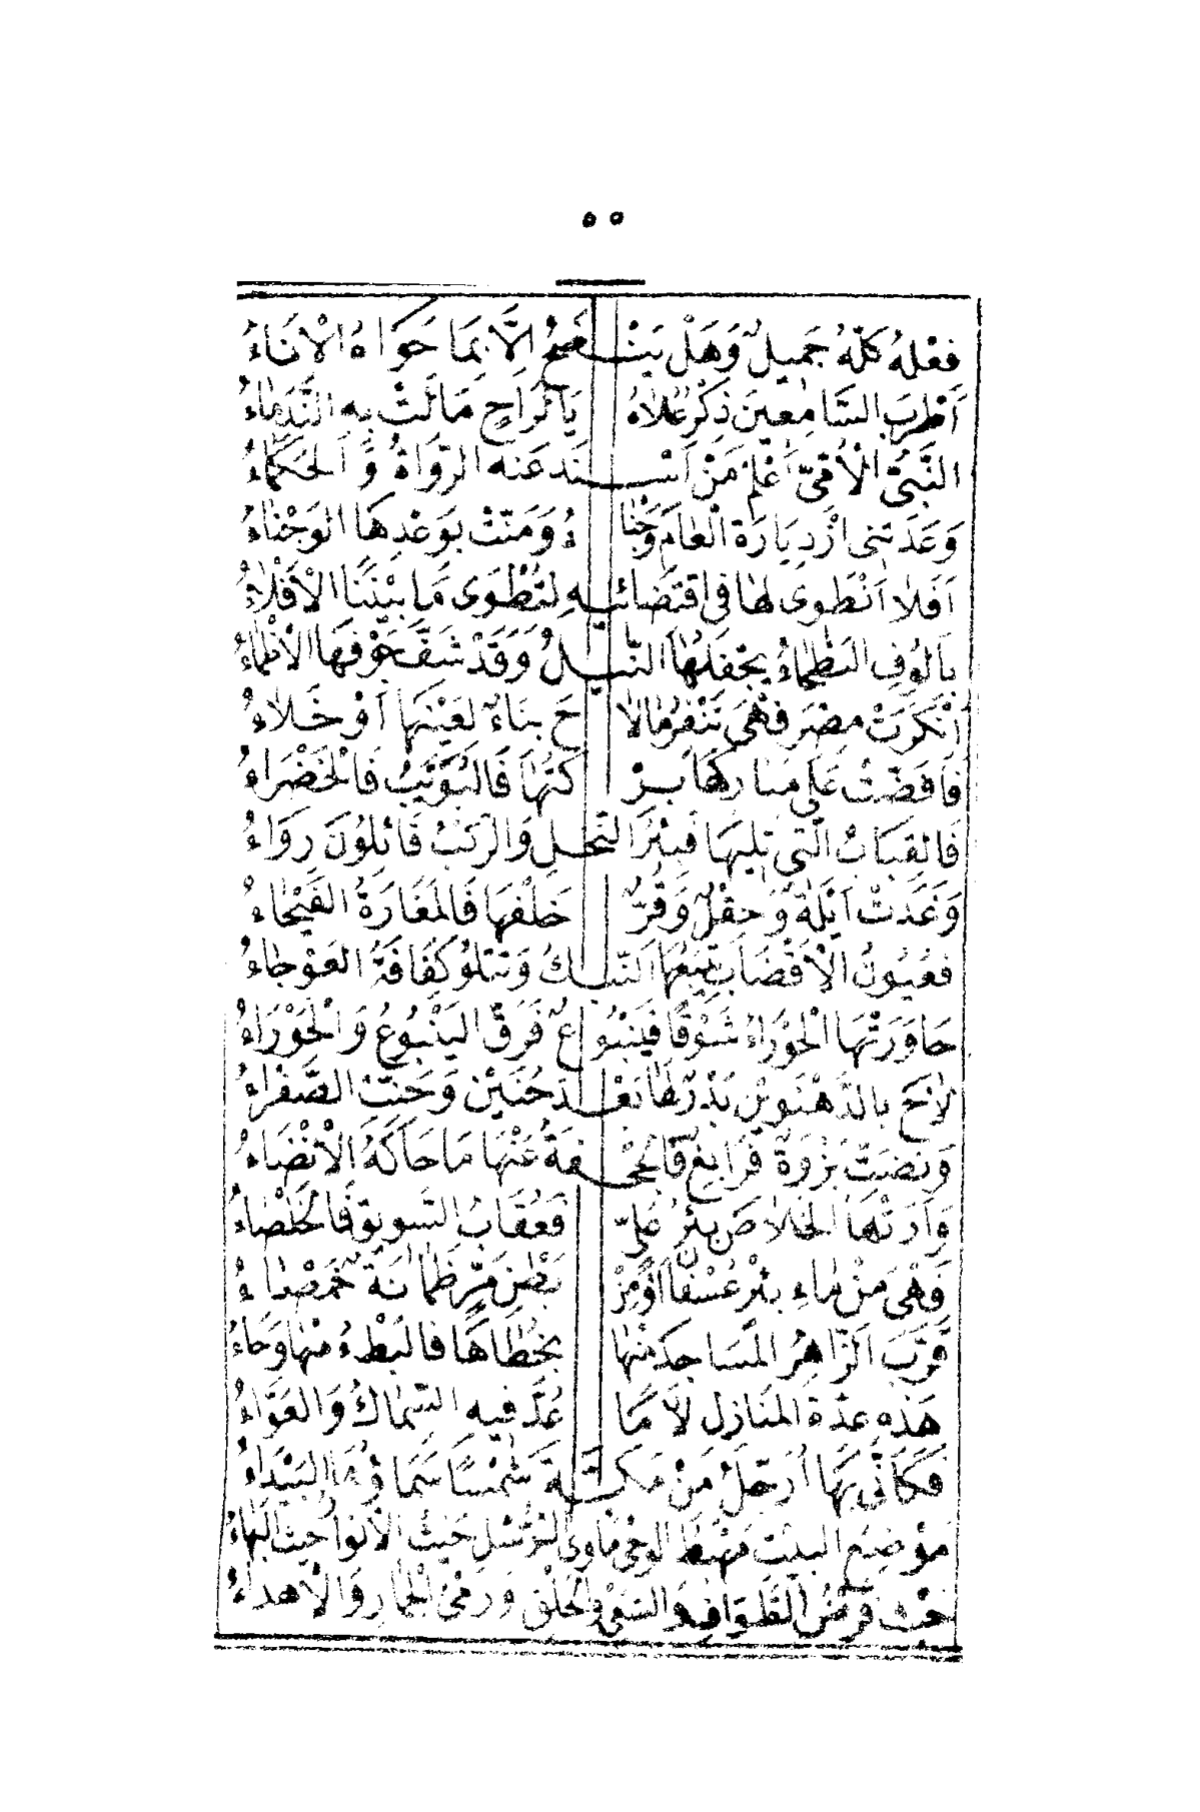 ٥٥
فِعْلُهُ كُلُّهُ جَمِيلٌ وَهَلْ يَنْـضَحُ اِلَّا بِمَا حَوَاهُ الْاِنَاءُ
اَطْرَبَ السَّامِعِينَ ذِكْرُ عُلَاهُ يَا لَرَاحٍ مَالَتْ بِهِ النُّدَمَاءُ
النَّبِيُّ الْاُمِّيُّ اَعْلَمُ مَنْ اَسْـنَدَ عَنْهُ الرُّوَاةُ وَالْحُكَمَاءُ
وَعَدَتْنِى ازْدِيَارَهُ الْعَامَ وَجْنَا ءُ وَمَنَّتْ بِوَعْدِهَا الْوَجْنَاءُ
اَفَلَا اَنْطَوِى لَهَا فِى اقْتِضَائِيـهِ لِتُطْوَى مَا بَيْنَنَا الْاَفْلَاءُ
بِاَلُوفِ الْبَطْحَاءِ يُجْفِلُهَا النِّيـلُ وَقَدْ شَفَّ جَوْفَهَا الْاِظْمَاءُ
اَنْكَرَتْ مِصْرَ فَهْىَ تَنْفِرُ مَا لَا حَ بِنَاءٌ لِعَيْنِهَا اَوْ خَلَاءُ
فَاَفَضَّتْ عَلَى مَبَارِكِهَا بِرْ كَتُهَا فَالْبُوَيْبُ فَالْخَضْرَاءُ
فَالْقِبَابُ الَّتِى تَلِيهَا فَبِئْرُ النَّخْـلِ وَالرَّكْبُ قَائِلُونَ رِوَاءُ
وَغَدَتْ اَيْلَةٌ وَحِقْلٌ وَقُرٌّ خَلْفَهَا فَالْمَغَارَةُ الْفَيْحَاءُ
فَعُيُونُ الْاَقْصَابِ يَتْبَعُهَا النَّبْـكُ وَتَتْلُو كُفَافَةَ الْعَوْجَاءُ
حَاوَرَتْهَا الْحَوْرَاءُ شَوْقًا فَيَنْبُو عٌ فَرَقَّ الْيَنْبُوعُ وَالْحَوْرَاءُ
لَاحَ بِالدَّهْنَوَيْنِ بَدْرٌ لَهَا بَعْـدَ حُنَيْنٍ وَحَنَّتِ الصَّفْرَاءُ
وَنَضَتْ بَزْوَةٌ فَرَابِغُ فَالْجُحْـفَةُ عَنْهَا مَا حَاكَهُ الْاِنْضَاءُ
وَاَرَتْهَا الْخَلَاصَ بِئْرُ عَلِىٍّ فَعُقَابُ السَّوِيقِ فَالْخَلْصَاءُ
فَهْىَ مِنْ مَاءِ بِئْرِ عُسْفَانَ اَوْ مِنْ بَطْنِ مَرٍّ ظَمْآنَةٌ خَمْصَاءُ
قَرَّبَ الزَّاهِرُ الْمَسَاجِدَ مِنْهَا بِخُطَاهَا فَالْبُطْءُ مِنْهَا وَحَاءُ
هَذِهِ عِدَّةُ الْمَنَازِلِ لَا مَا عُدَّ فِيهِ السِّمَاكُ وَالْعَوَّاءُ
فَكَاَنِّى بِهَا اُرَحِّلُ مِنْ مَكَّـةَ شَمْسًا سَمَاؤُهَا الْبَيْدَاءُ
مَوْضِعُ الْبَيْتِ مَهْبِطُ الْوَحْىِ مَاْوَى الرُّسْلِ حَيْثُ الْاَنْوَارُ حَيْثُ الْبَهَاءُ
حَيْثُ فَرْضُ الطَّوَافِ وَالسَّعْىُ وَالْحَلْقُ وَرَمْىُ الْجِمَارِ وَالْاِهْدَاءُ